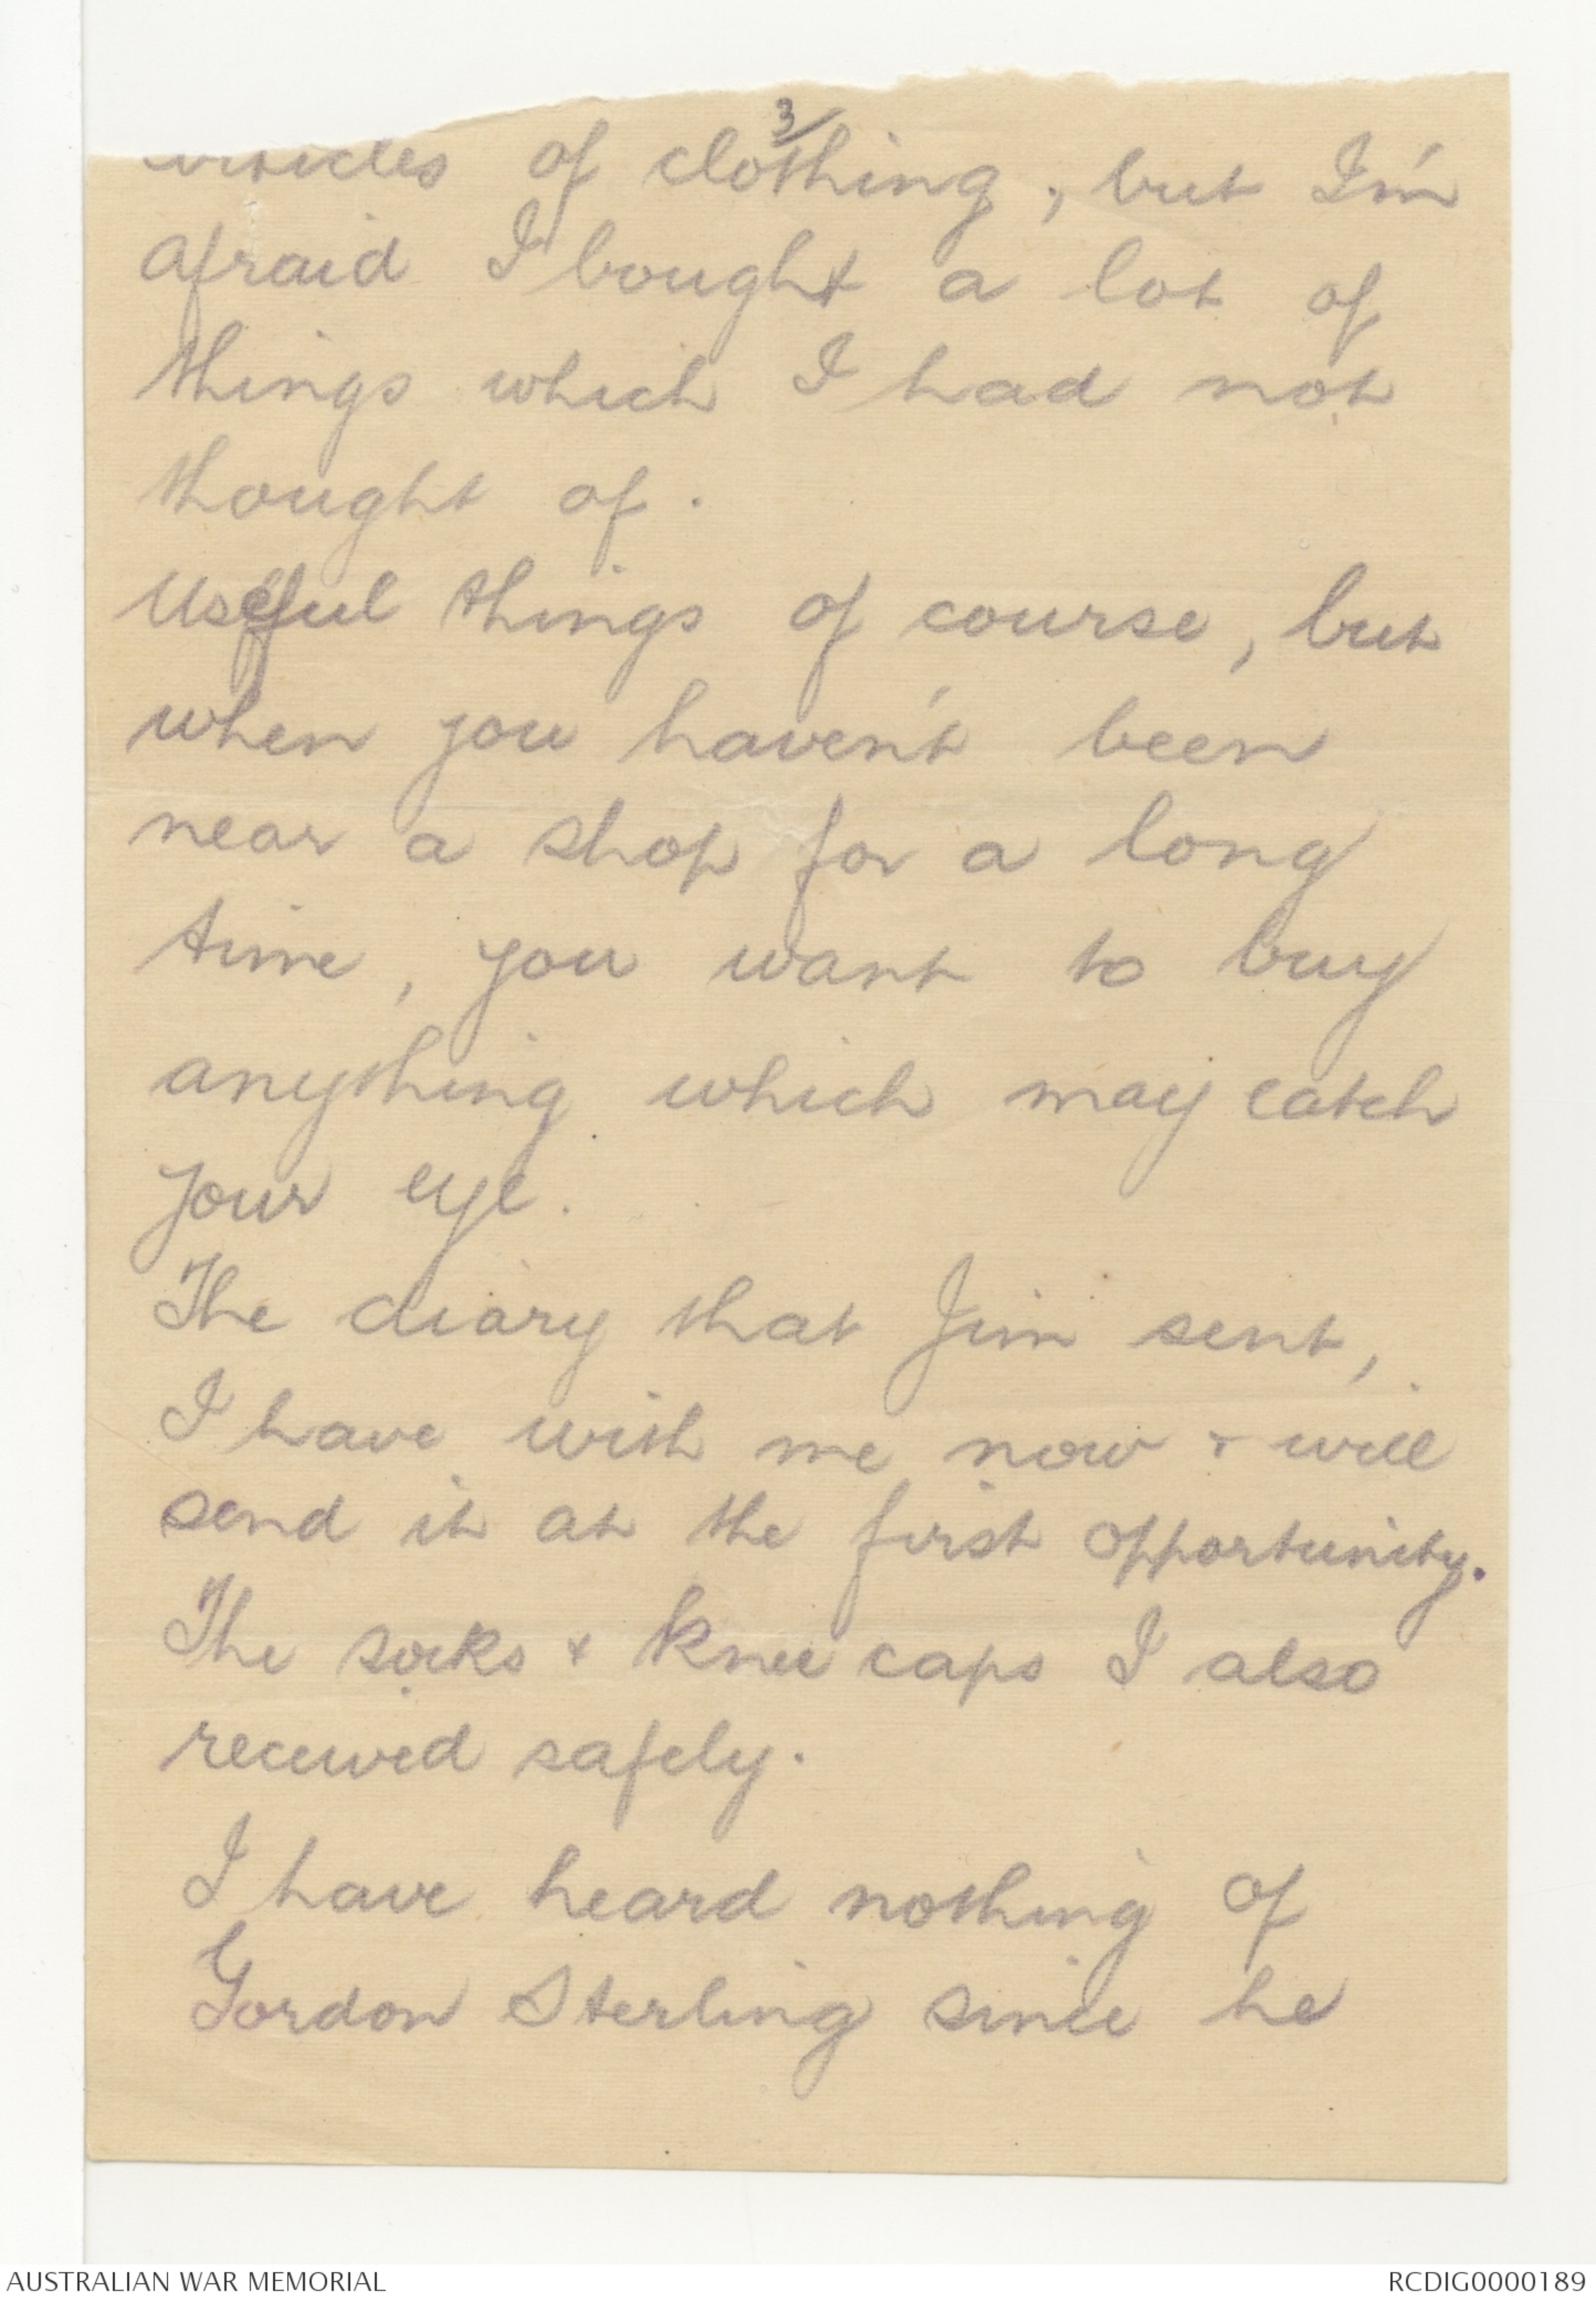 3/
articles of clothing, but I'm
afraid I bought a lot of
things which I had not
thought of.
Useful things of course, but
when you haven't been
near a shop for a long
time, you want to buy
anything which may catch
your eye.
The diary that Jim sent,
I have with me now & will
send it at the first opportunity.
The socks & knee caps I also
received safely.
I have heard nothing of
Gordon Sterling since he
AUSTRALIAN WAR MEMORIAL
RCDIG0000189